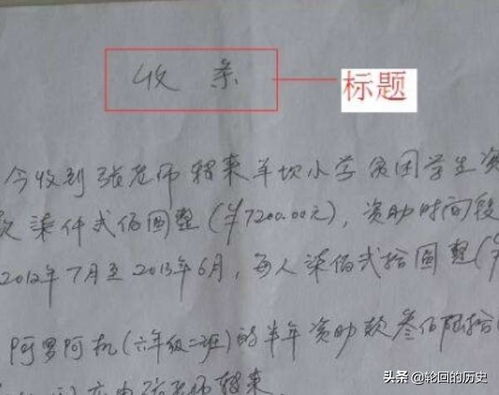 收条
标题
今收到张老师转来羊坎小学贫困学生资
款柒仟贰佰圆整(¥7200.00元),资助时间段
2012年7月至2013年6月,每人柒佰贰拾圆整(¥
阿罗阿机(六年级二班)的半年资助款叁佰陆拾
张老师转来.
头条 @轮回的历史